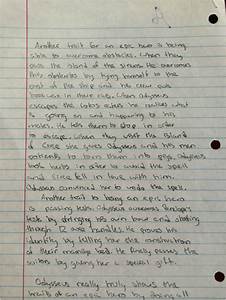 Another trait for an epic hero is being
able to overcome obstacles. When they
pass the island of the sirens. He overcomes
this obstacles by tying himself to the
mast of the ship and his crew puts
beeswax in their ears. When Odysseus
escapes the lotus eaters he realizes what
is going on and happening to his
mates. He ties them to ship in order
to escape. When they visit the Island
of Circe she gives Odysseus and his men
to turn them into pigs. Odysseus
took herbs in order to avoid the spell
and Circe fell in love with him.
Odysseus convinced her to undo the spell.
Another trait to being an epic hero
is passing tests. Odysseus overcomes Penelope's
tests by stringing his own bow and shooting
through 12 axe handles. He proves his
identity by telling her the construction
of their marriage bed. He finally passes the
suitors by giving her a special gift.
Odysseus really truly shows the
traits of an epic hero by doing all